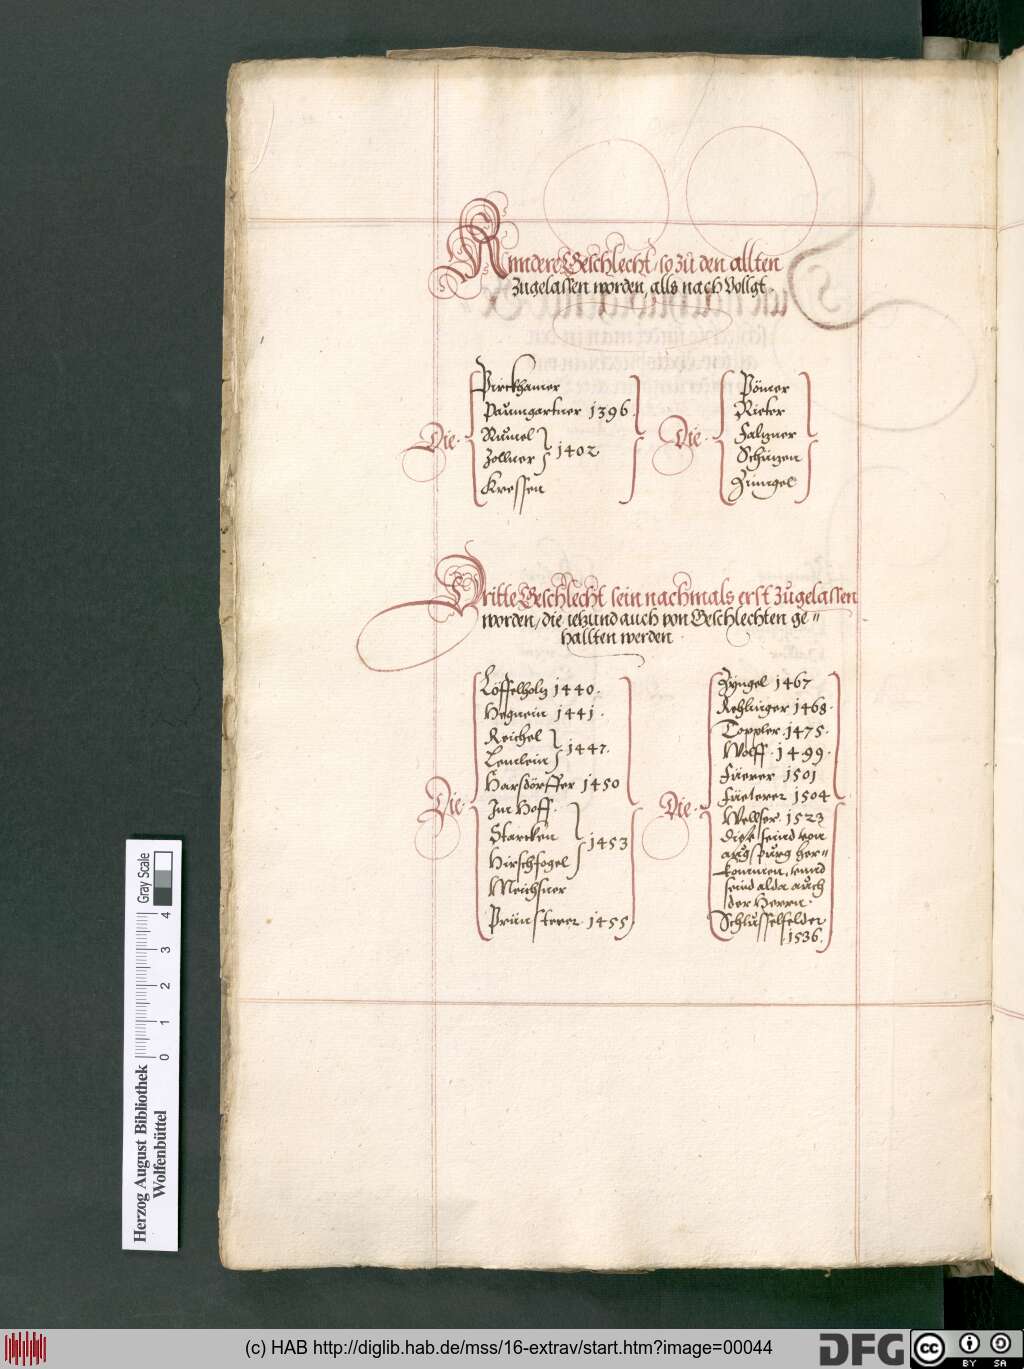 Anndere Geschlecht / so zu den allten
zugelassen worden, alls nach Vollgt.
Die.
Pirckhamer
Paumgartner 1396.
Rumel
Zollner
1402
Kressen
Die.
Pömer
Rieter
Falzner
Schürzen
Zinngel
Dritte Geschlecht sein nachmals erst zugelassen
worden / die jetzund auch von Geschlechten ge„
hallten werden.
Die.
Löffelholz 1440.
Hegnein 1441.
Reichel
Lemlein
1447.
Harsdörffer 1450
Im Hoff.
Starcken
Hirschfogel
1453
Meichsner
Prünsterer 1455
Die.
Zyngel 1467
Rehlinger 1468.
Toppler 1475.
Wolff. 1499.
Füerer 1501
Füeterer 1504
Wellser 1523
diese seind von
augspurg her„
kommen, vnnd
seind alda auch
der Herrn.
Schlüsselfelder
1536.
Herzog August Bibliothek
Wolfenbüttel
0 1 2 3 4
Gray Scale
(c) HAB http://diglib.hab.de/mss/16-extrav/start.htm?image=00044
DFG
cc
BY SA